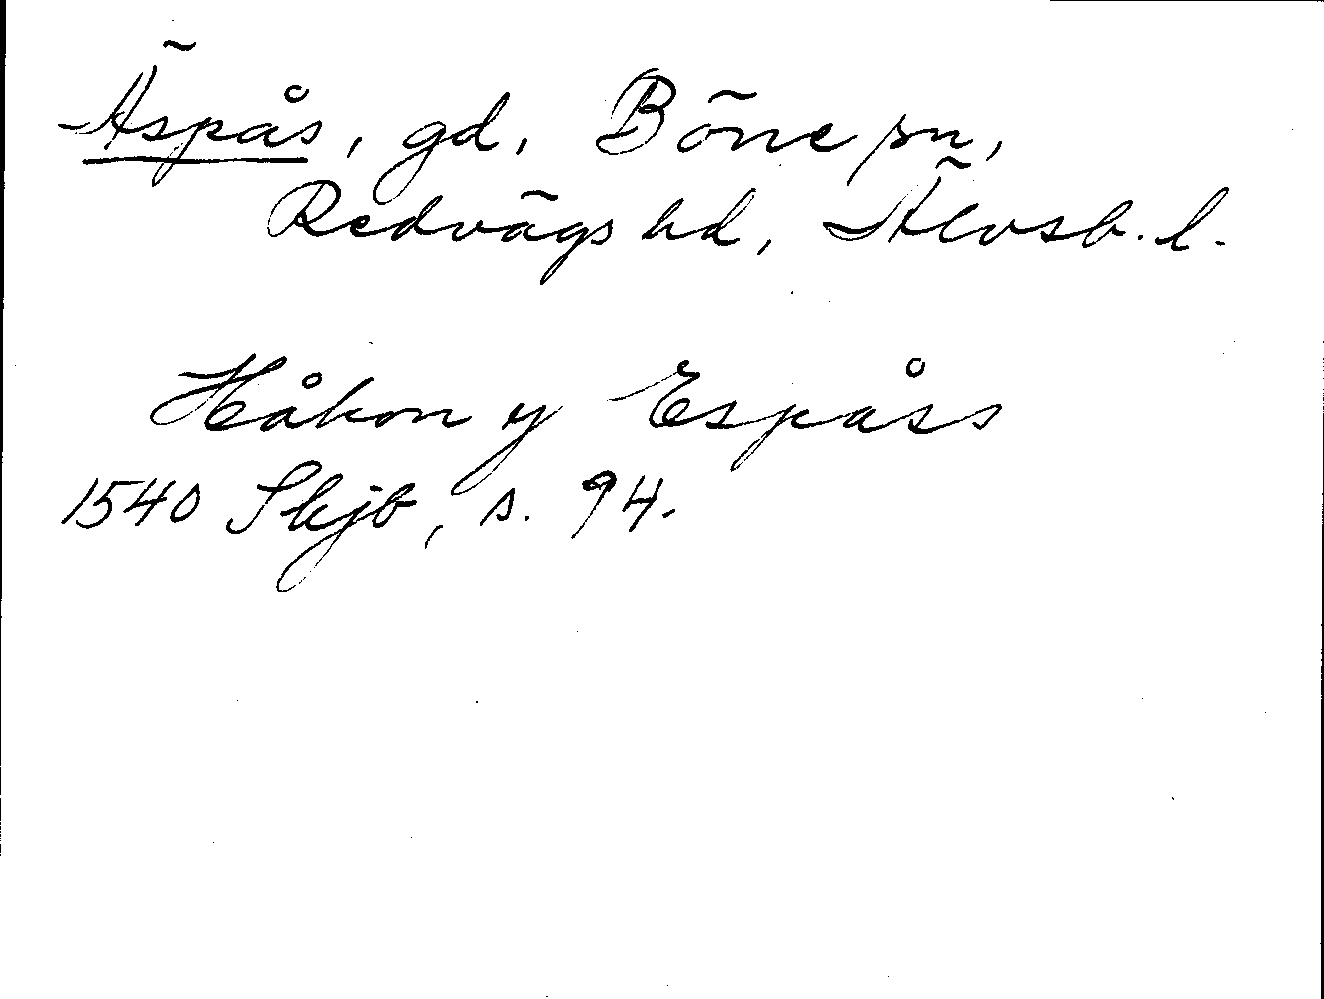 Äspås, gd, Böne sn,
Redvägs hd, Älvsb. l.
Håkon y Espåss
1540 Skjb, s. 94.